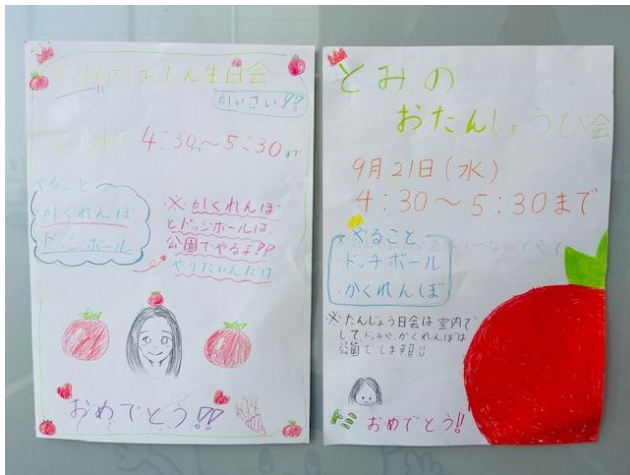 とみのおたん生日会
かいさい!!
(水) 4:30〜5:30まで
やること
かくれんぼ
ドッジボール
※かくれんぼ
とドッジボールは、
公園でやるよ!!
やりたいんだけ
おめでとう!!
とみの
おたんじょうび会
9月21日(水)
4:30〜5:30まで
★やること
・ドッチボール
・かくれんぼ
※たんじょう日会は室内で
して、ドッチや、かくれんぼは
公園でします!!
おめでとう!!